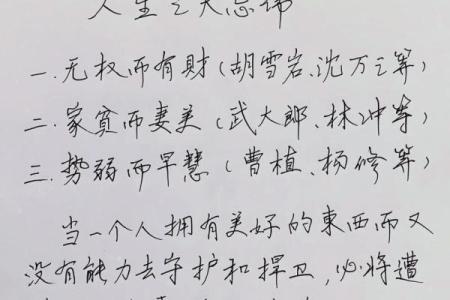 人生之大忌
一.无权而有財(胡雪岩、沈万三等)
二.家贫而妻美(武大郎、林冲等)
三.势弱而早慧(曹植、杨修等)
当一个人拥有美好的東西而又
没有能力去守护和捍卫,必将遭